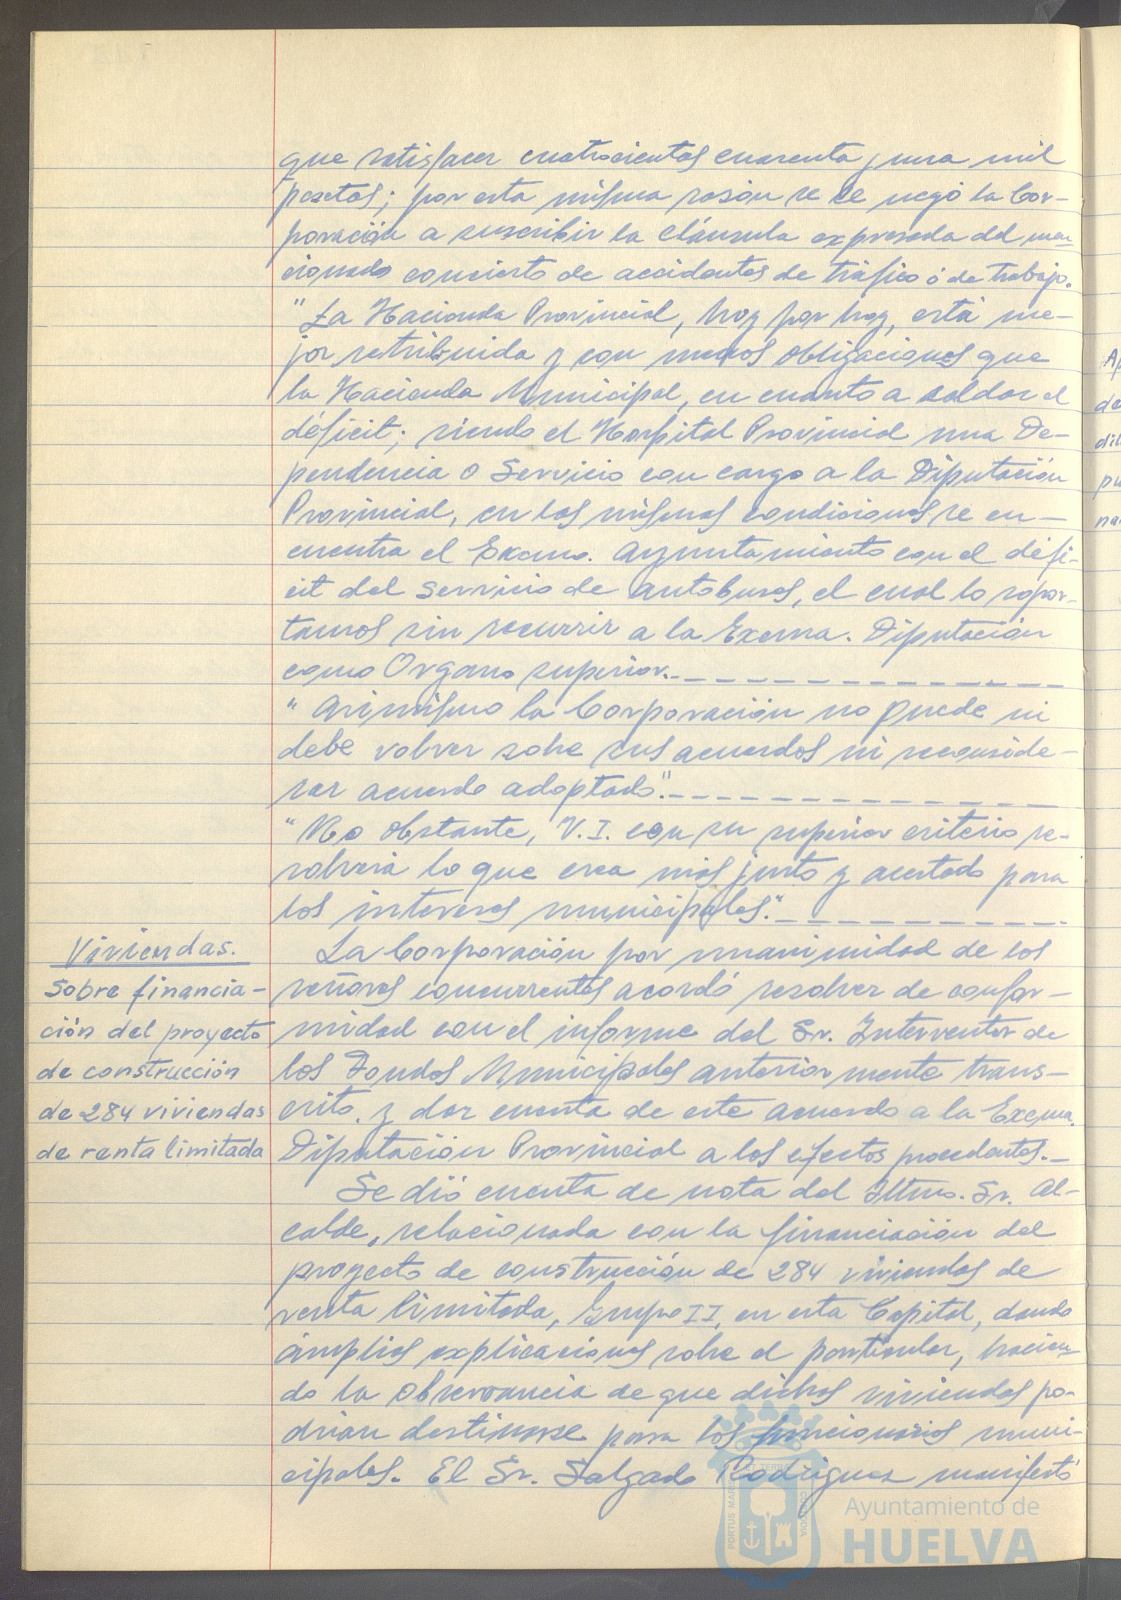 que satisfacer cuatrocientas cuarenta y una mil
pesetas; por esta misma razón se le negó la Cor-
poración a suscribir la cláusula expresada del men
cionado concierto de accidentes de tráfico ó de trabajo.
"La Hacienda Provincial, hoy por hoy, está me-
jor retribuida y con menos obligaciones que
la Hacienda Municipal, en cuanto a saldar el
déficit; siendo el Hospital Provincial una De-
pendencia o Servicio con cargo a la Diputación
Provincial, en las mismas condiciones se en-
cuentra el Excmo. Ayuntamiento con el défi-
cit del servicio de autobuses, el cual lo sopor-
tamos sin recurrir a la Excma. Diputación
como Organo superior.
" Asimismo la Corporación no puede ni
debe volver sobre sus acuerdos ni reconside-
rar acuerdo adoptado".
"No obstante, V.I. con su superior criterio re-
solverá lo que crea más justo y acertado para
los intereses municipales."
La Corporación por unanimidad de los
señores concurrentes acordó resolver de confor-
midad con el informe del Sr. Interventor de
los Fondos Municipales anteriormente trans-
crito, y dar cuenta de este acuerdo a la Excma.
Diputación Provincial a los efectos procedentes.
Viviendas.
Sobre financia-
ción del proyecto
de construcción
de 284 viviendas
de renta limitada
Se dió cuenta de nota del Iltmo. Sr. Al-
calde, relacionada con la financiación del
proyecto de construcción de 284 viviendas de
renta limitada, Grupo II, en esta Capital, dando
ámplias explicaciones sobre el particular, hacien-
do la observancia de que dichas viviendas po-
drían destinarse para los funcionarios muni-
cipales. El Sr. Salgado Rodríguez manifestó
Ayuntamiento de
HUELVA